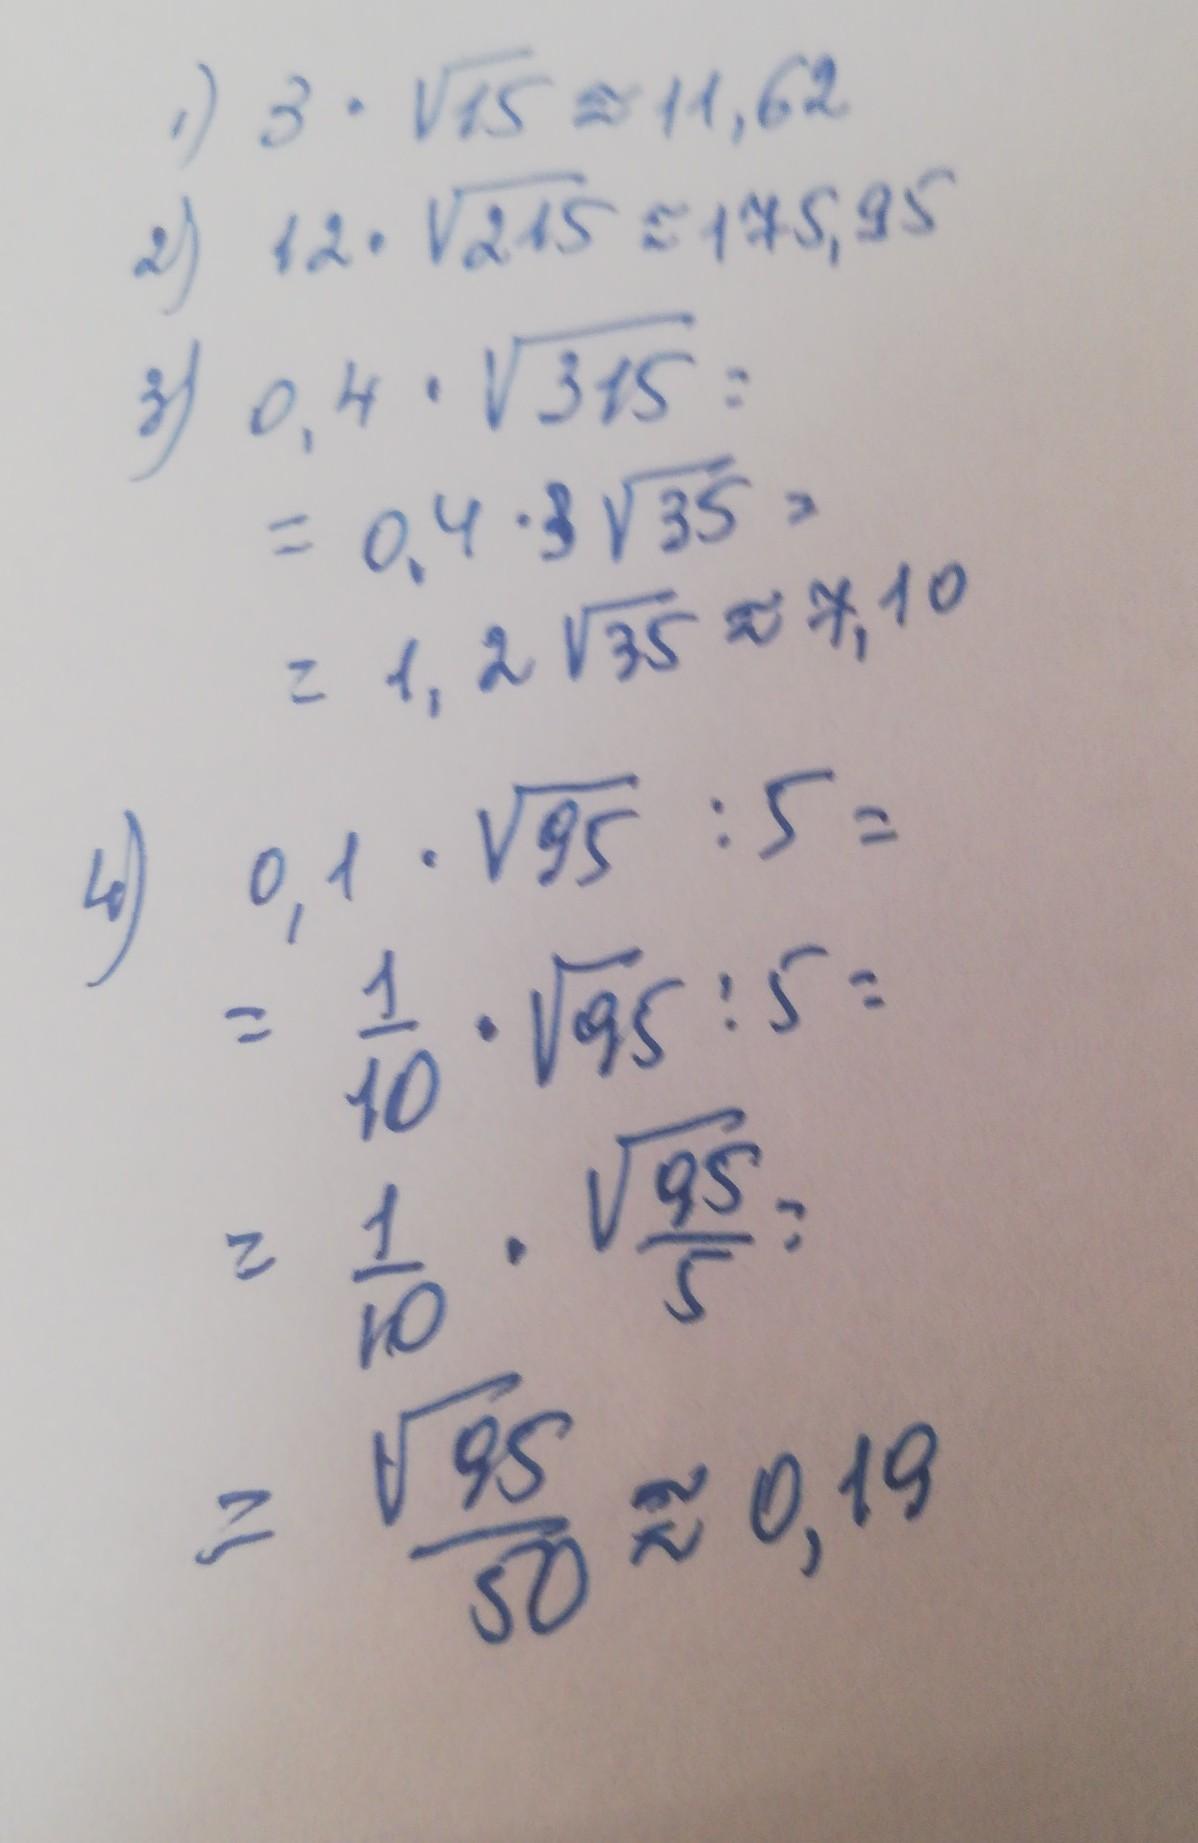 1) 3 · √15 ≈ 11,62
2) 12 · √215 ≈ 175,95
3) 0,4 · √315 =
= 0,4 · 3 √35 =
= 1,2 √35 ≈ 7,10
4) 0,1 · √95 : 5 =
= 1/10 · √95 : 5 =
= 1/10 · √95/5 =
= √95/50 ≈ 0,19